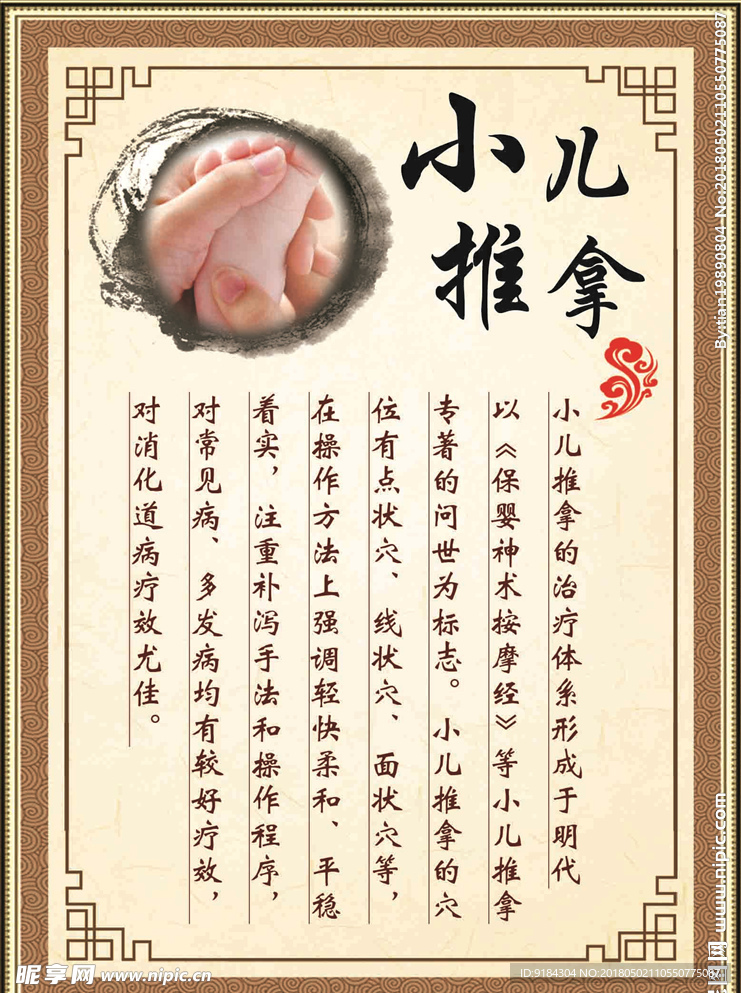 小儿
推拿
小儿推拿的治疗体系形成于明代
以《保婴神术按摩经》等小儿推拿
专著的问世为标志。小儿推拿的穴
位有点状穴、线状穴、面状穴等，
在操作方法上强调轻快柔和、平稳
着实，注重补泻手法和操作程序，
对常见病、多发病均有较好疗效，
对消化道病疗效尤佳。
By:tian19890804 No:20180502110550775087
昵图网 www.nipic.com
昵享网 www.nipic.cn
ID:9184304 NO:20180502110550775087